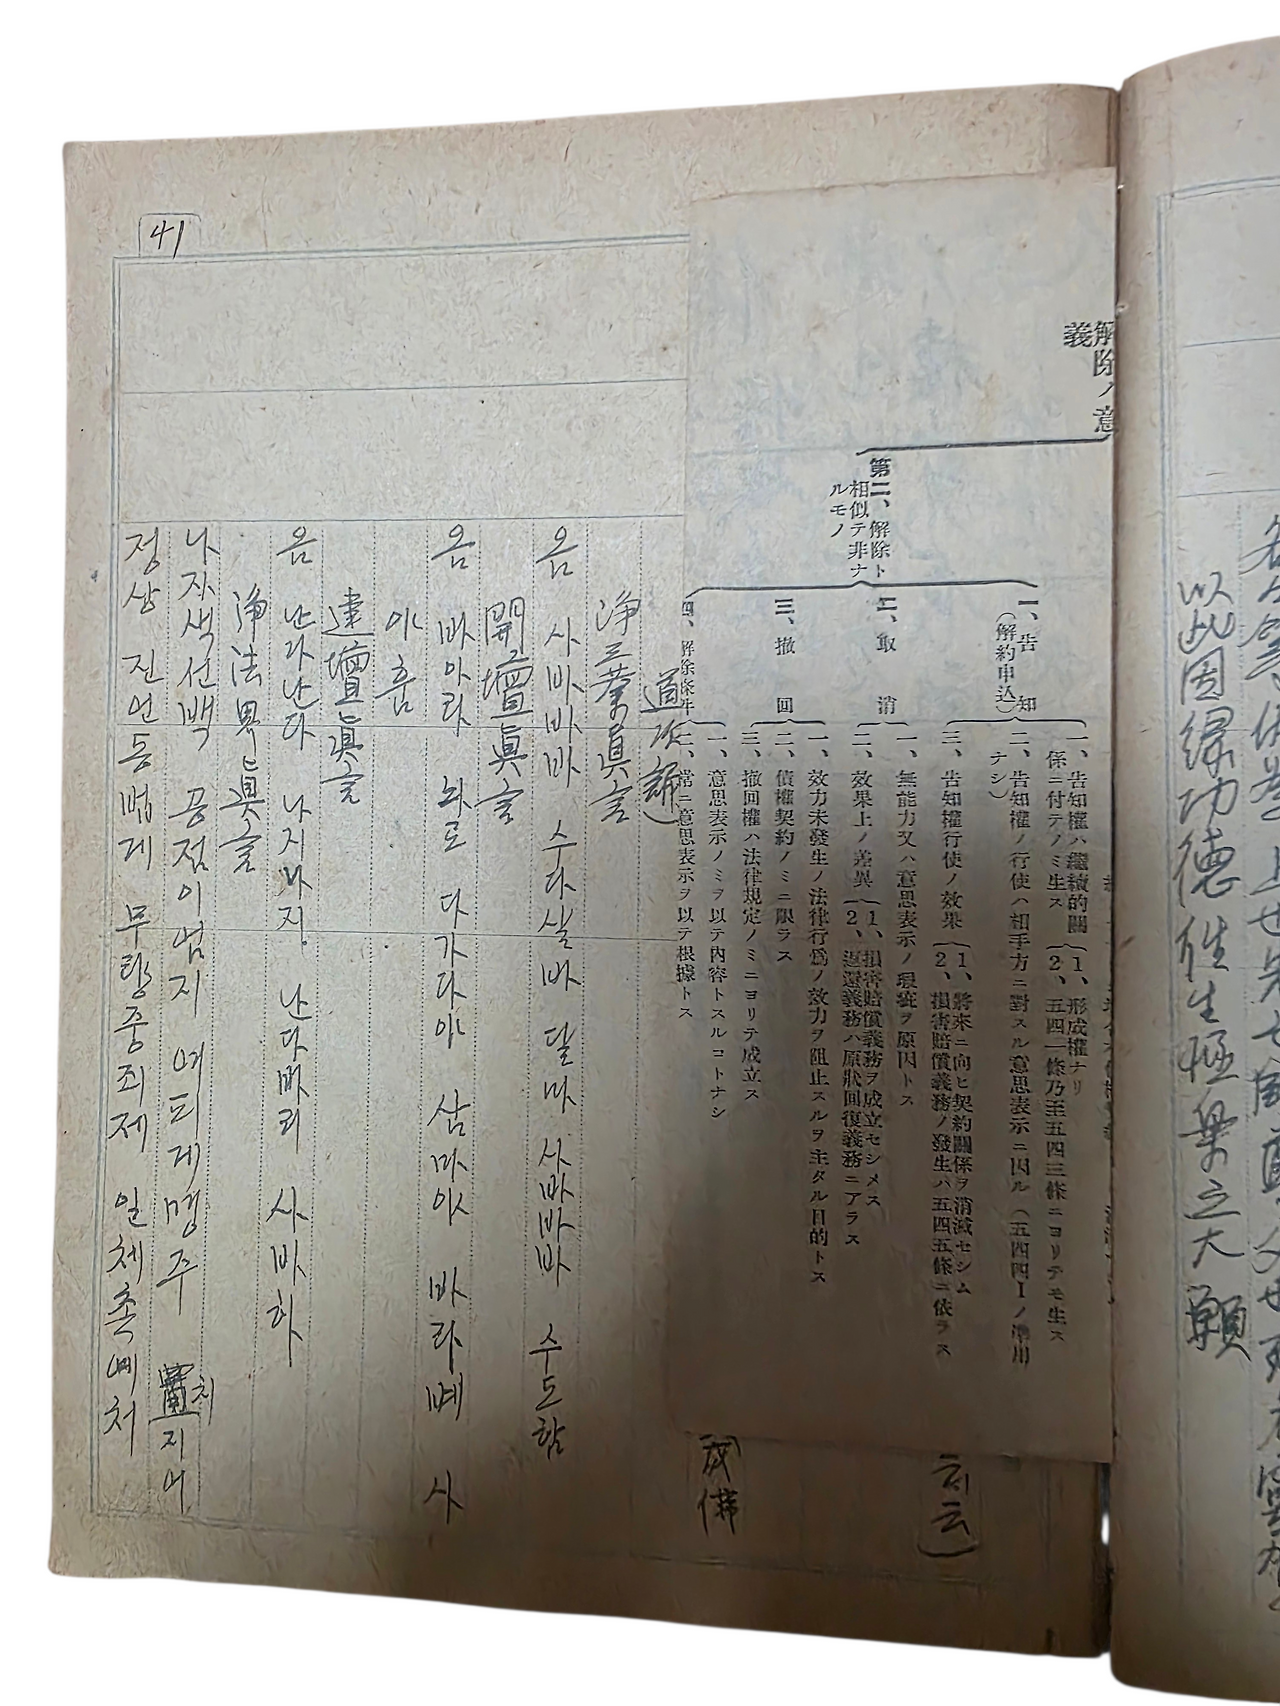 以此因緣功德往生極樂之大願
解除ノ意
義
第二、解除ト
相似テ非ナ
ルモノ
一、告知
(解約申込)
一、告知權ハ繼續的關
係ニ付テノミ生ス
1、形成權ナリ
2、五四一條乃至五四三條ニヨリテモ生ス
二、告知權ノ行使ハ相手方ニ對スル意思表示ニ因ル(五四四Iノ準用
ナシ)
三、告知權行使ノ效果
1、將來ニ向ヒ契約關係ヲ消滅セシム
2、損害賠償義務ノ發生ハ五四五條ニ依ラス
二、取消
一、無能力又ハ意思表示ノ瑕疵ヲ原因トス
二、效果上ノ差異
1、損害賠償義務ヲ成立セシメス
2、返還義務ハ原狀回復義務ニアラス
三、撤回
一、效力未發生ノ法律行爲ノ效力ヲ阻止スルヲ主タル目的トス
二、債權契約ノミニ限ラス
三、撤回權ハ法律規定ノミニヨリテ成立ス
四、解除條件
一、意思表示ノミヲ以テ內容トスルコトナシ
二、常ニ意思表示ヲ以テ根據トス
成佛
淨三業眞言
옴 사바바바 수다살바 달마 사바바바 수도함
開壇眞言
옴 바아라 놔로 다가다야 삼마야 바라볘 사
야훔
建壇眞言
옴 난다난다 나지나지 난다바리 사바하
淨法界眞言
나자색선백 공점이엄지 여피계명주 치지어
정상 진언동법계 무량중죄제 일체촉예처
41